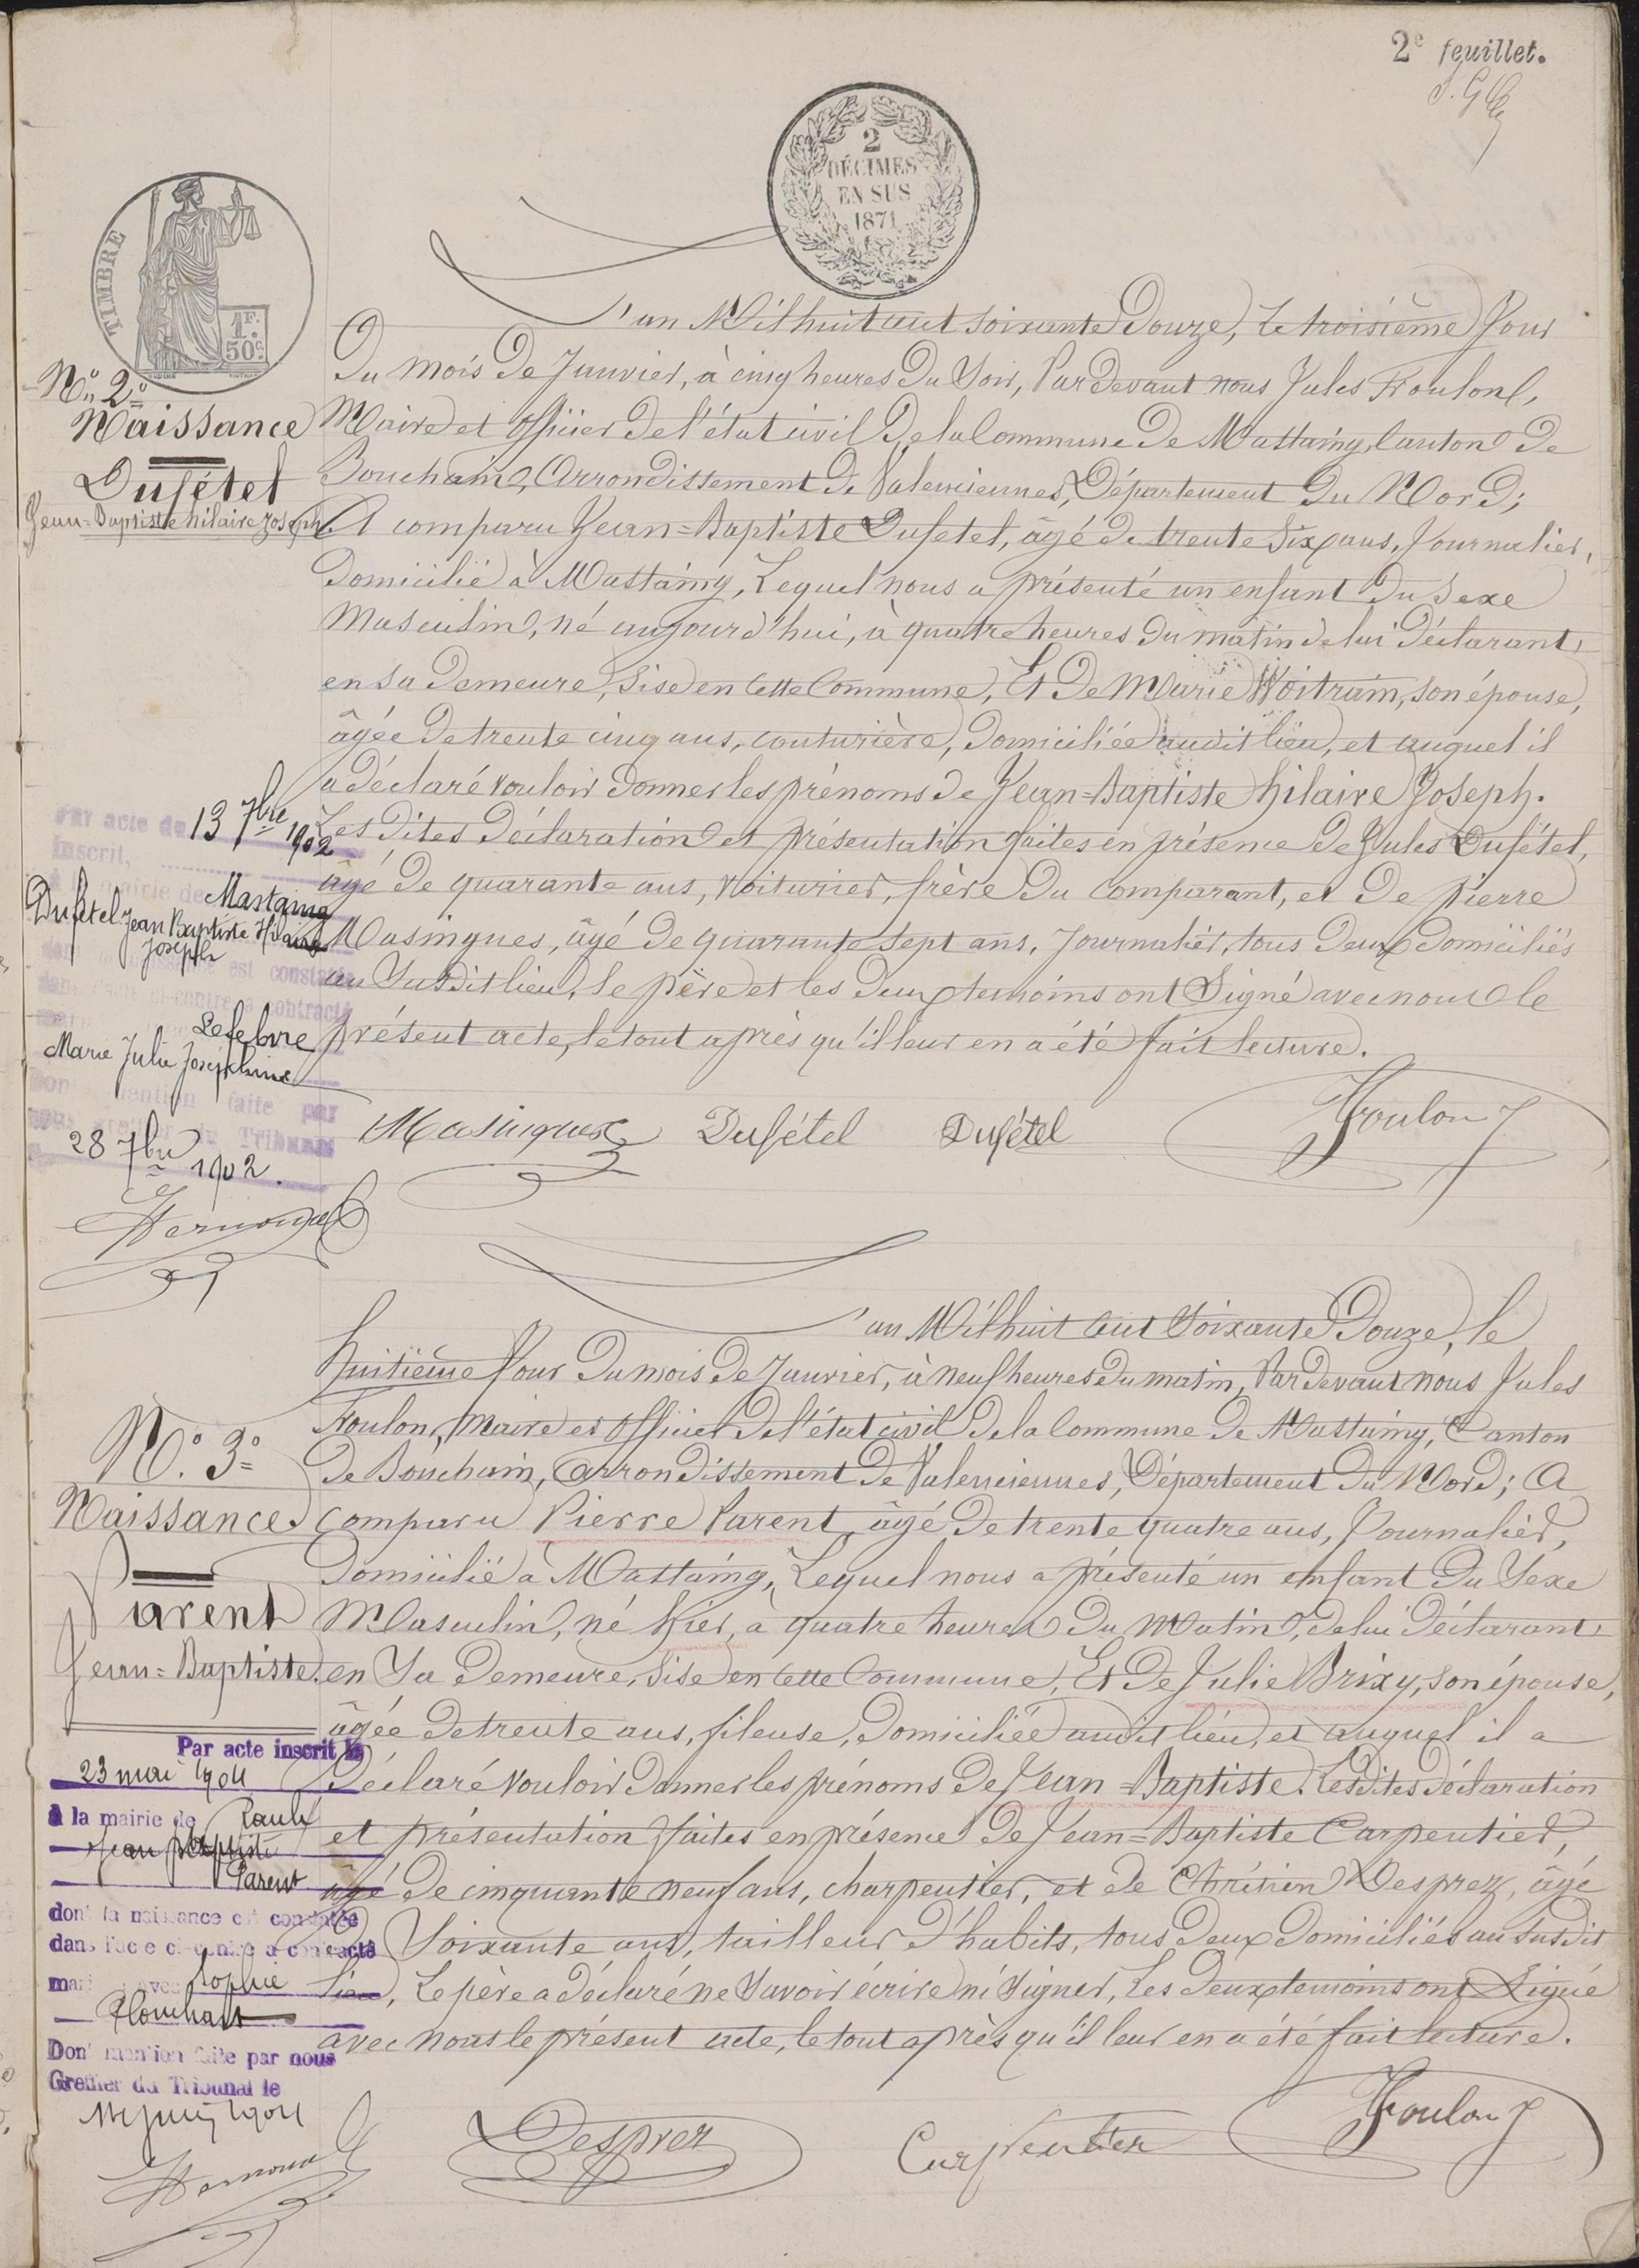 2e feuillet.
2
DÉCIMES
EN SUS
1871
TIMBRE
1F.
50c.
L'an Mil huit cent soixante Douze, le troisième Jour
Du mois De Janvier, à cinq heures Du Soir, Pardevant nous Jules Froulon,
Maire et officier De l'état civil De la Commune De Mastaing, Canton De
Bouchain, Arrondissement De Valenciennes, Département Du Nord;
A comparu Jean=Baptiste Dufetel, âgé De trente six ans, Journalier,
Domicilié à Mastaing, Lequel nous a présenté un enfant Du Sexe
Masculin, né aujourd'hui, à quatre heures du matin de lui Déclarant,
en sa Demeure, sise en cette Commune, Et De Marie Woitrain, son épouse,
âgée De trente cinq ans, couturière, Domiciliée audit lieu, et auquel il
a déclaré vouloir Donner les prénoms De Jean=Baptiste hilaire Joseph.
Les Dites Déclaration et présentation faites en présence De Jules Dufétel,
âgé De quarante ans, voiturier, frère Du comparant, et De pierre
Masingues, âgé De quarante sept ans, Journalier, tous Deux Domiciliés
au Susdit lieu, le père et les Deux temoins ont Signé avec nous le
présent acte, le tout après qu'il leur en a été fait lecture.
Masingues Dufétel Dufétel Froulon J
No. 2o
Naissance
Dufétel
Jean=Baptiste hilaire Joseph
Par acte du 13 7bre 1902
inscrit,
mairie de Mastaing
Dufetel Jean Baptiste Hilaire
Joseph
est constatée
dans l'acte ci-contre a contracté
Lefebvre
Marie Julie Joséphine
Dont mention faite par
nous greffier du Tribunal
28 7bre
1902.
L'an Mil huit Cent Soixante Douze, le
huitième Jour Du mois De Janvier, à neuf heures du matin, Pardevant nous Jules
Froulon, Maire et officier De l'état civil De la Commune De Mastaing, Canton
De Bouchain, Arrondissement De Valenciennes, Département Du Nord; A
comparu Pierre Parent, âgé De trente quatre ans, Journalier,
Domicilié à Mastaing, Lequel nous a présenté un enfant Du Sexe
Masculin, né hier, à quatre heures Du Matin, de lui Déclarant,
en Sa Demeure, sise en cette Commune, Et De Julie Brixy, son épouse,
âgée De trente ans, fileuse, Domiciliée audit lieu, et auquel il a
Déclaré vouloir Donner les prénoms De Jean=Baptiste. Lesdites déclaration
et présentation faites en présence De Jean=Baptiste Carpentier,
âgé De cinquante neuf ans, charpentier, et de Chrétien Desprez, âgé
De Soixante ans, tailleur D'habits, tous Deux Domiciliés au susdit
lieu, Le père a déclaré ne Savoir écrire ni Signer, Les Deux temoins ont Signé
avec nous le présent acte, le tout après qu'il leur en a été fait lecture.
Desprez Carpentier Froulon J
No. 3o
Naissance.
Parent
Jean=Baptiste.
Par acte inscrit le
23 mai 1904
à la mairie de
Jean Baptiste
Parent
dont la naissance est constatée
dans l'acte ci-contre a contracté
mariage avec Sophie
Dont mention faite par nous
Greffier du Tribunal le
1904